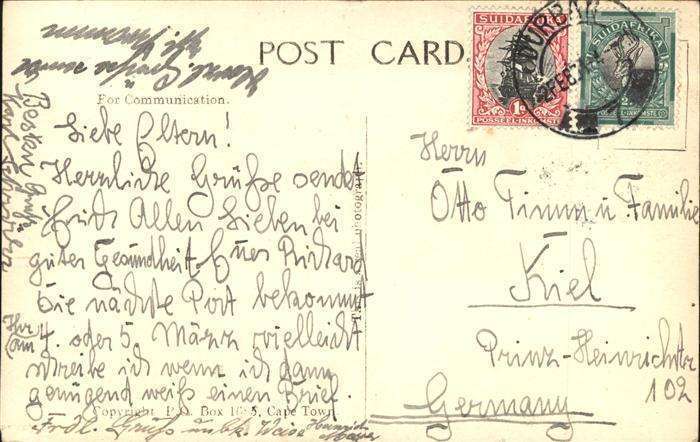 POST CARD.
For Communication.
SUIDAFRIKA
1D
POSSEEL-INKOMSTE
SUIDAFRIKA
POSSEEL-INKOMSTE
Liebe Eltern!
Herzliche Grüße sendet
Euch Allen Lieben bei
guter Gesundheit Euer Richard
Die nächste Post bekommt
Ihr am 4. oder 5. März vielleicht
schreibe ich wenn ich dann
genügend weiß einen Brief.
Copyright P.O. Box Cape Town
Frdl. Gruß
Heinrich
Besten Gruß
Herzl. Grüße
Herrn
Otto Timm u. Familie
Kiel
Prinz-Heinrichstr
102
Germany